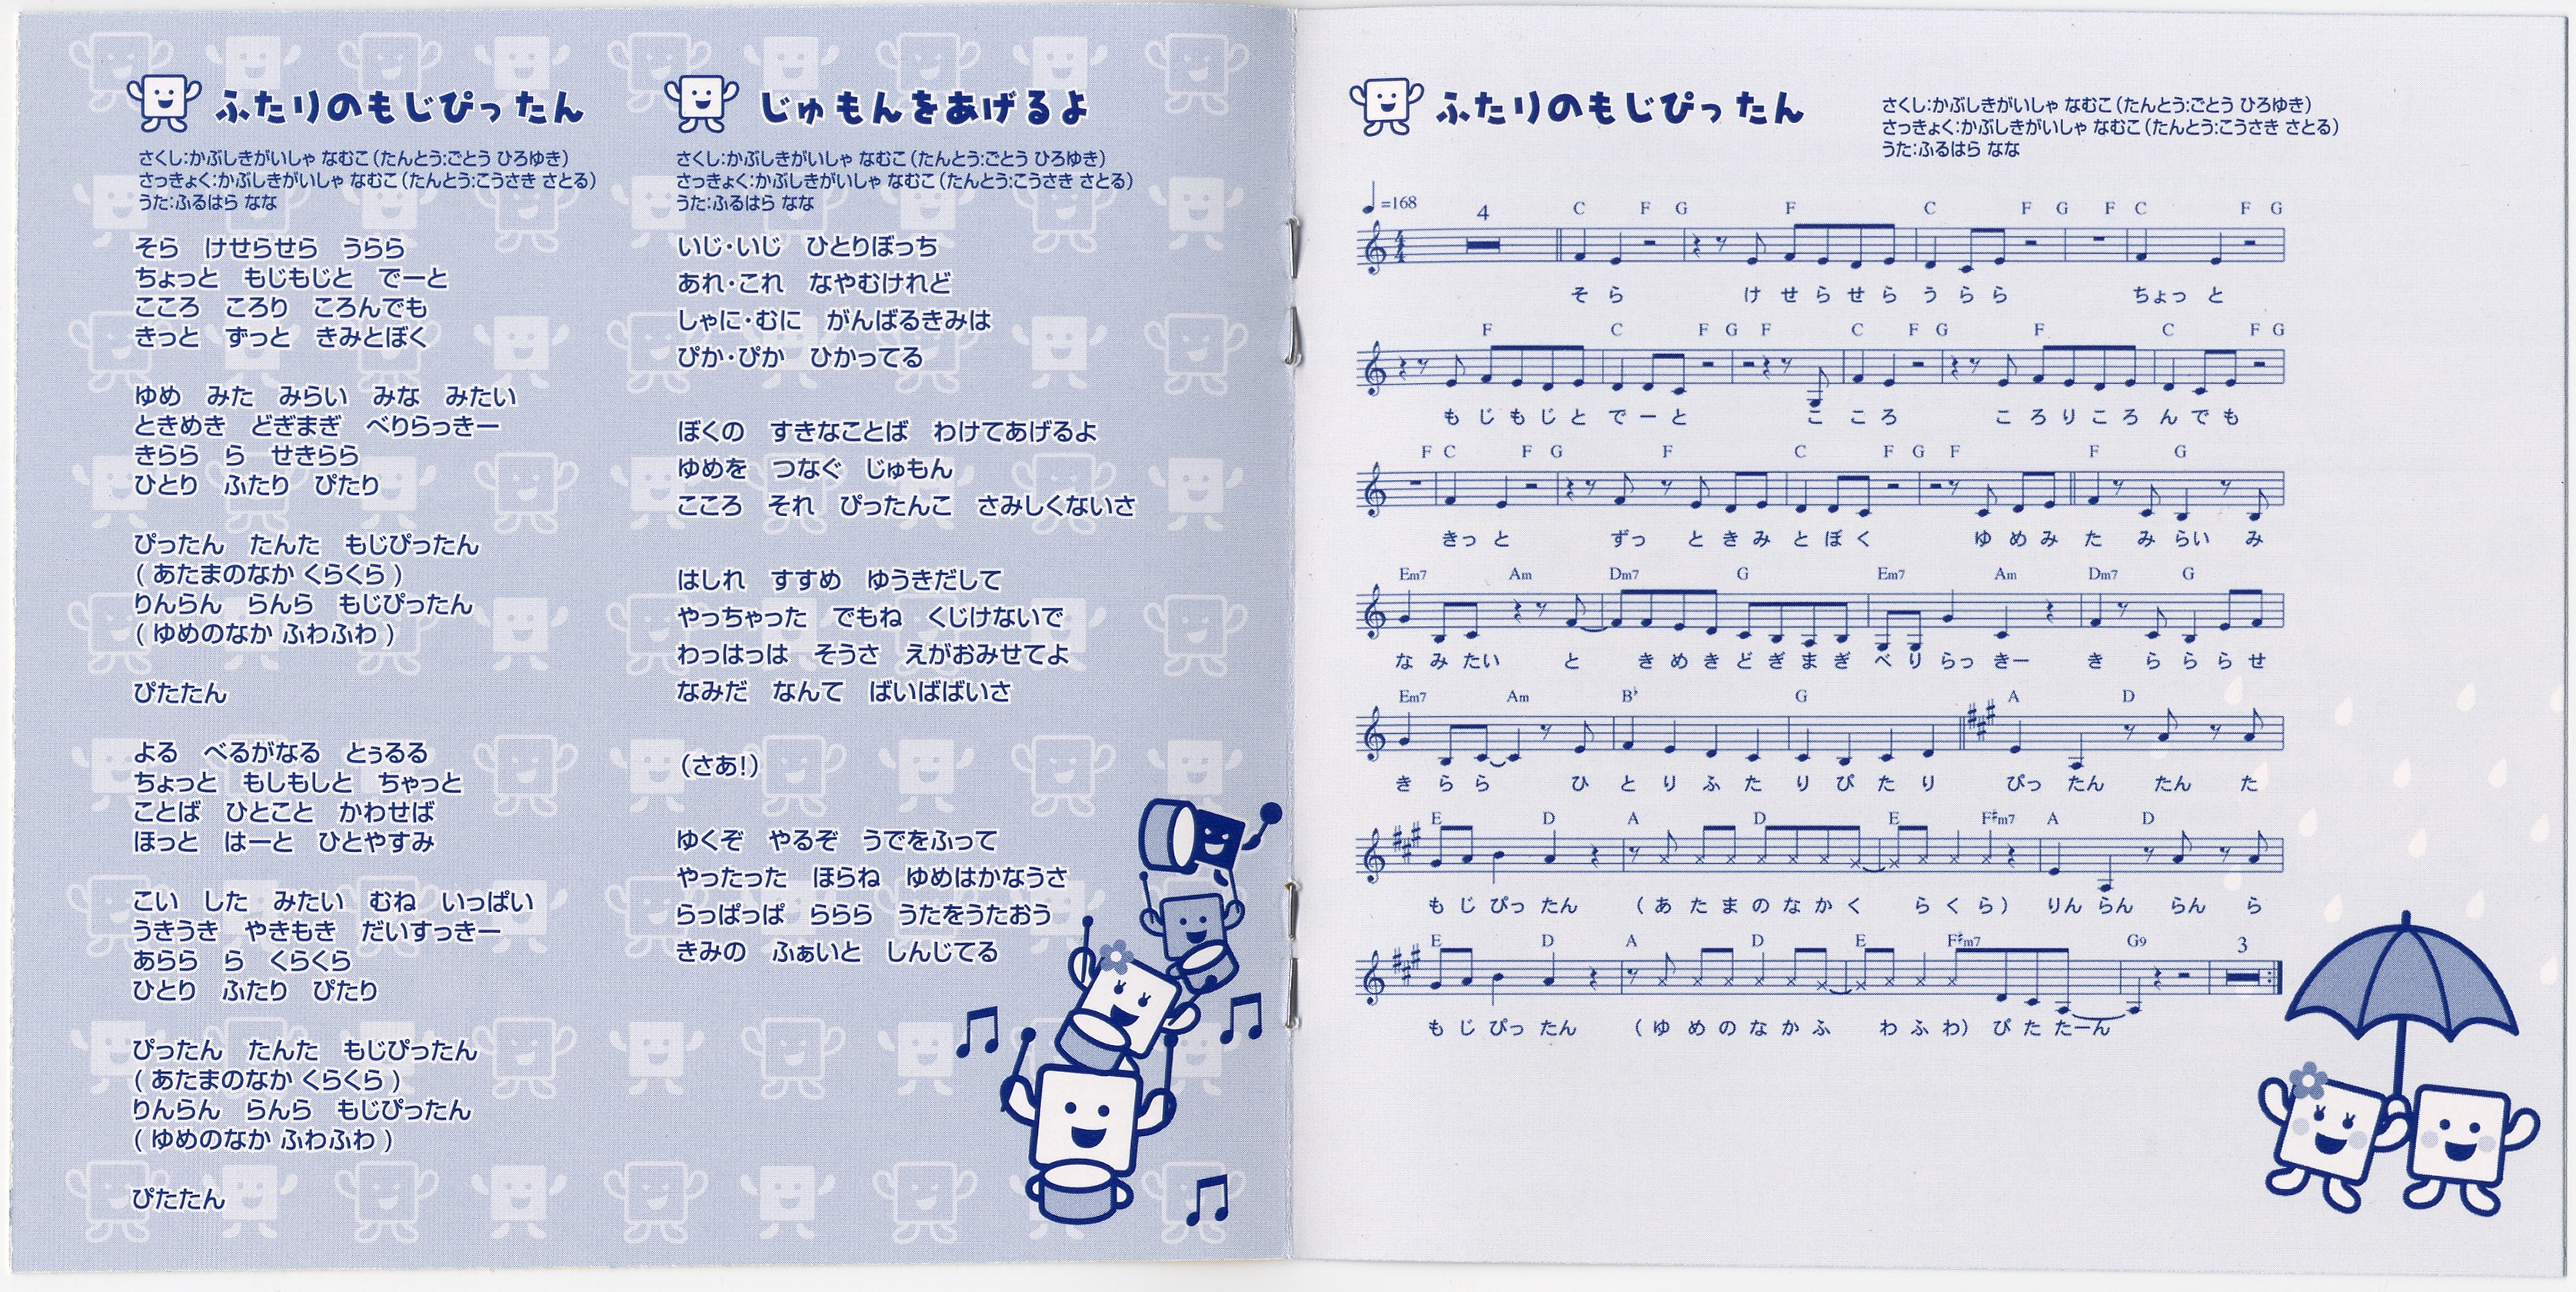 ふたりのもじぴったん
さくし:かぶしきがいしゃ なむこ(たんとう:ごとう ひろゆき)
さっきょく:かぶしきがいしゃ なむこ(たんとう:こうさき さとる)
うた:ふるはら なな
そら　けせらせら　うらら
ちょっと　もじもじと　でーと
こころ　ころり　ころんでも
きっと　ずっと　きみとぼく
ゆめ　みた　みらい　みな　みたい
ときめき　どぎまぎ　べりらっきー
きらら　ら　せきらら
ひとり　ふたり　ぴたり
ぴったん　たんた　もじぴったん
( あたまのなか くらくら )
りんらん　らんら　もじぴったん
( ゆめのなか ふわふわ )
ぴたたん
よる　べるがなる　とぅるる
ちょっと　もしもしと　ちゃっと
ことば　ひとこと　かわせば
ほっと　はーと　ひとやすみ
こい　した　みたい　むね　いっぱい
うきうき　やきもき　だいすっきー
あらら　ら　くらくら
ひとり　ふたり　ぴたり
ぴったん　たんた　もじぴったん
( あたまのなか くらくら )
りんらん　らんら　もじぴったん
( ゆめのなか ふわふわ )
ぴたたん
じゅもんをあげるよ
さくし:かぶしきがいしゃ なむこ(たんとう:ごとう ひろゆき)
さっきょく:かぶしきがいしゃ なむこ(たんとう:こうさき さとる)
うた:ふるはら なな
いじ・いじ　ひとりぼっち
あれ・これ　なやむけれど
しゃに・むに　がんばるきみは
ぴか・ぴか　ひかってる
ぼくの　すきなことば　わけてあげるよ
ゆめを　つなぐ　じゅもん
こころ　それ　ぴったんこ　さみしくないさ
はしれ　すすめ　ゆうきだして
やっちゃった　でもね　くじけないで
わっはっは　そうさ　えがおみせてよ
なみだ　なんて　ばいばばいさ
(さあ!)
ゆくぞ　やるぞ　うでをふって
やったった　ほらね　ゆめはかなうさ
らっぱっぱ　ららら　うたをうたおう
きみの　ふぁいと　しんじてる
ふたりのもじぴったん
さくし:かぶしきがいしゃ なむこ(たんとう:ごとう ひろゆき)
さっきょく:かぶしきがいしゃ なむこ(たんとう:こうさき さとる)
うた:ふるはら なな
♩=168 4 C F G F C F G F C F G
そ ら け せ ら せ ら う ら ら ちょっ と
F C F G F C F G F C F G
も じ も じ と で ー と こ こ ろ こ ろ り こ ろ ん で も
F C F G F C F G F F G
きっ と ずっ と き み と ぼ く ゆ め み た み らい み
Em7 Am Dm7 G Em7 Am Dm7 G
な み たい と き め き ど ぎ ま ぎ べ り らっ きー き ら ら ら せ
Em7 Am B♭ G A D
き ら ら ひ と り ふ た り ぴ た り ぴっ たん たん た
E D A D E F♯m7 A D
も じ ぴっ たん ( あ た ま の な か く ら く ら ) りん らん らん ら
E D A D E F♯m7 G9 3
も じ ぴっ たん ( ゆ め の な か ふ わ ふ わ ) ぴ た たーん